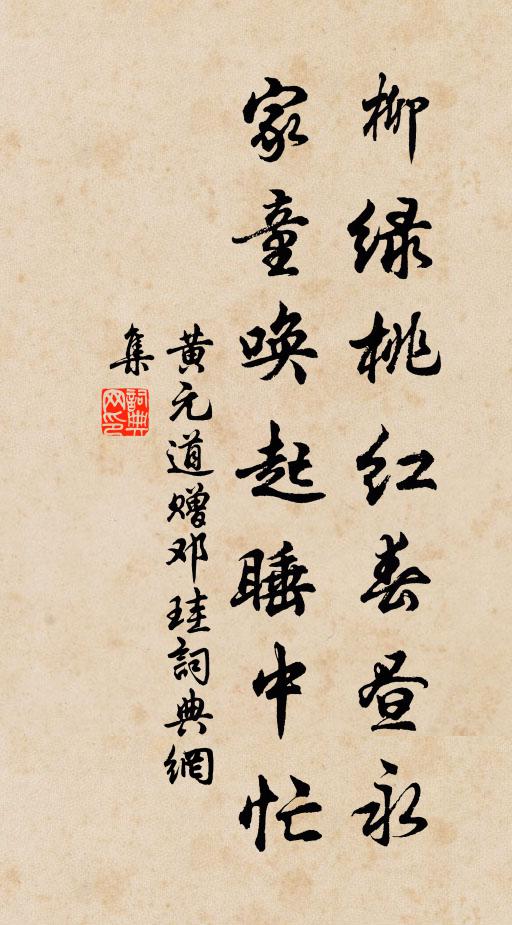 柳绿桃红春昼永
家童唤起睡中忙
黄元道赠邓珪詞典網
集
詞典
网印